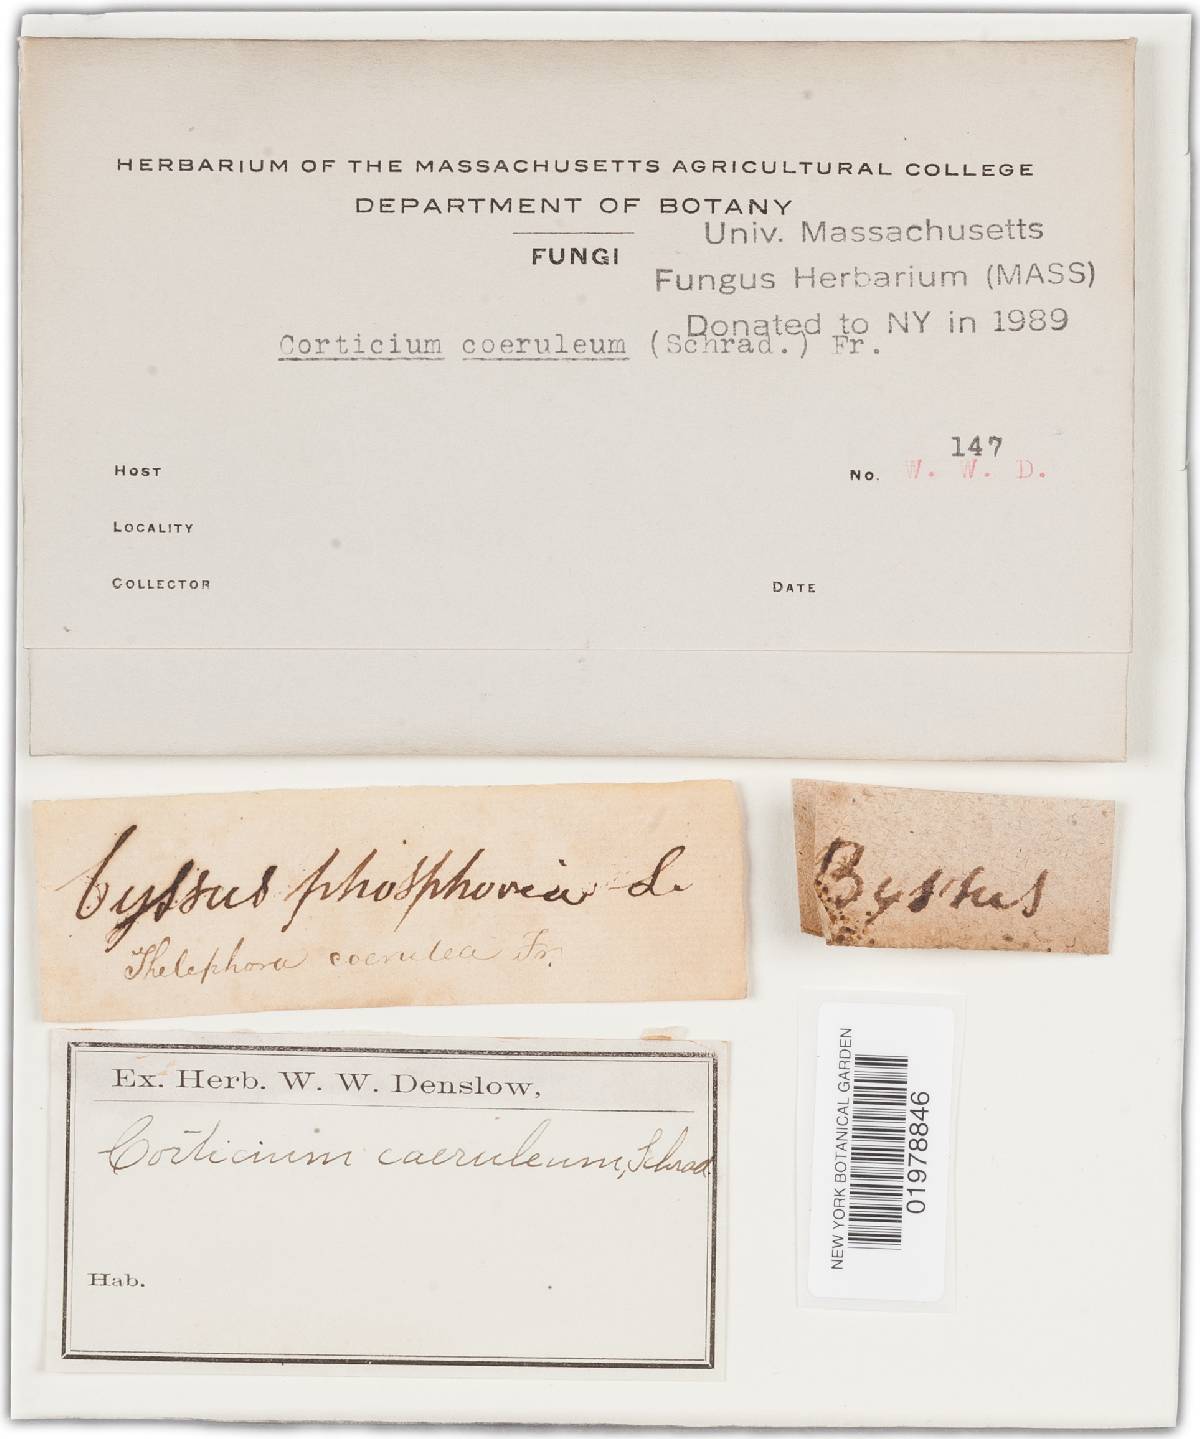 HERBARIUM OF THE MASSACHUSETTS AGRICULTURAL COLLEGE
DEPARTMENT OF BOTANY
FUNGI
Univ. Massachusetts
Fungus Herbarium (MASS)
Donated to NY in 1989
Corticium coeruleum (Schrad.) Fr.
147
HOST
No. W. W. D.
LOCALITY
COLLECTOR
DATE
byssus phosphorea L.
Thelephora coerulea Fr.
Byssus
Ex. Herb. W. W. Denslow,
Corticium caeruleum, Schrad.
Hab.
NEW YORK BOTANICAL GARDEN
01978846